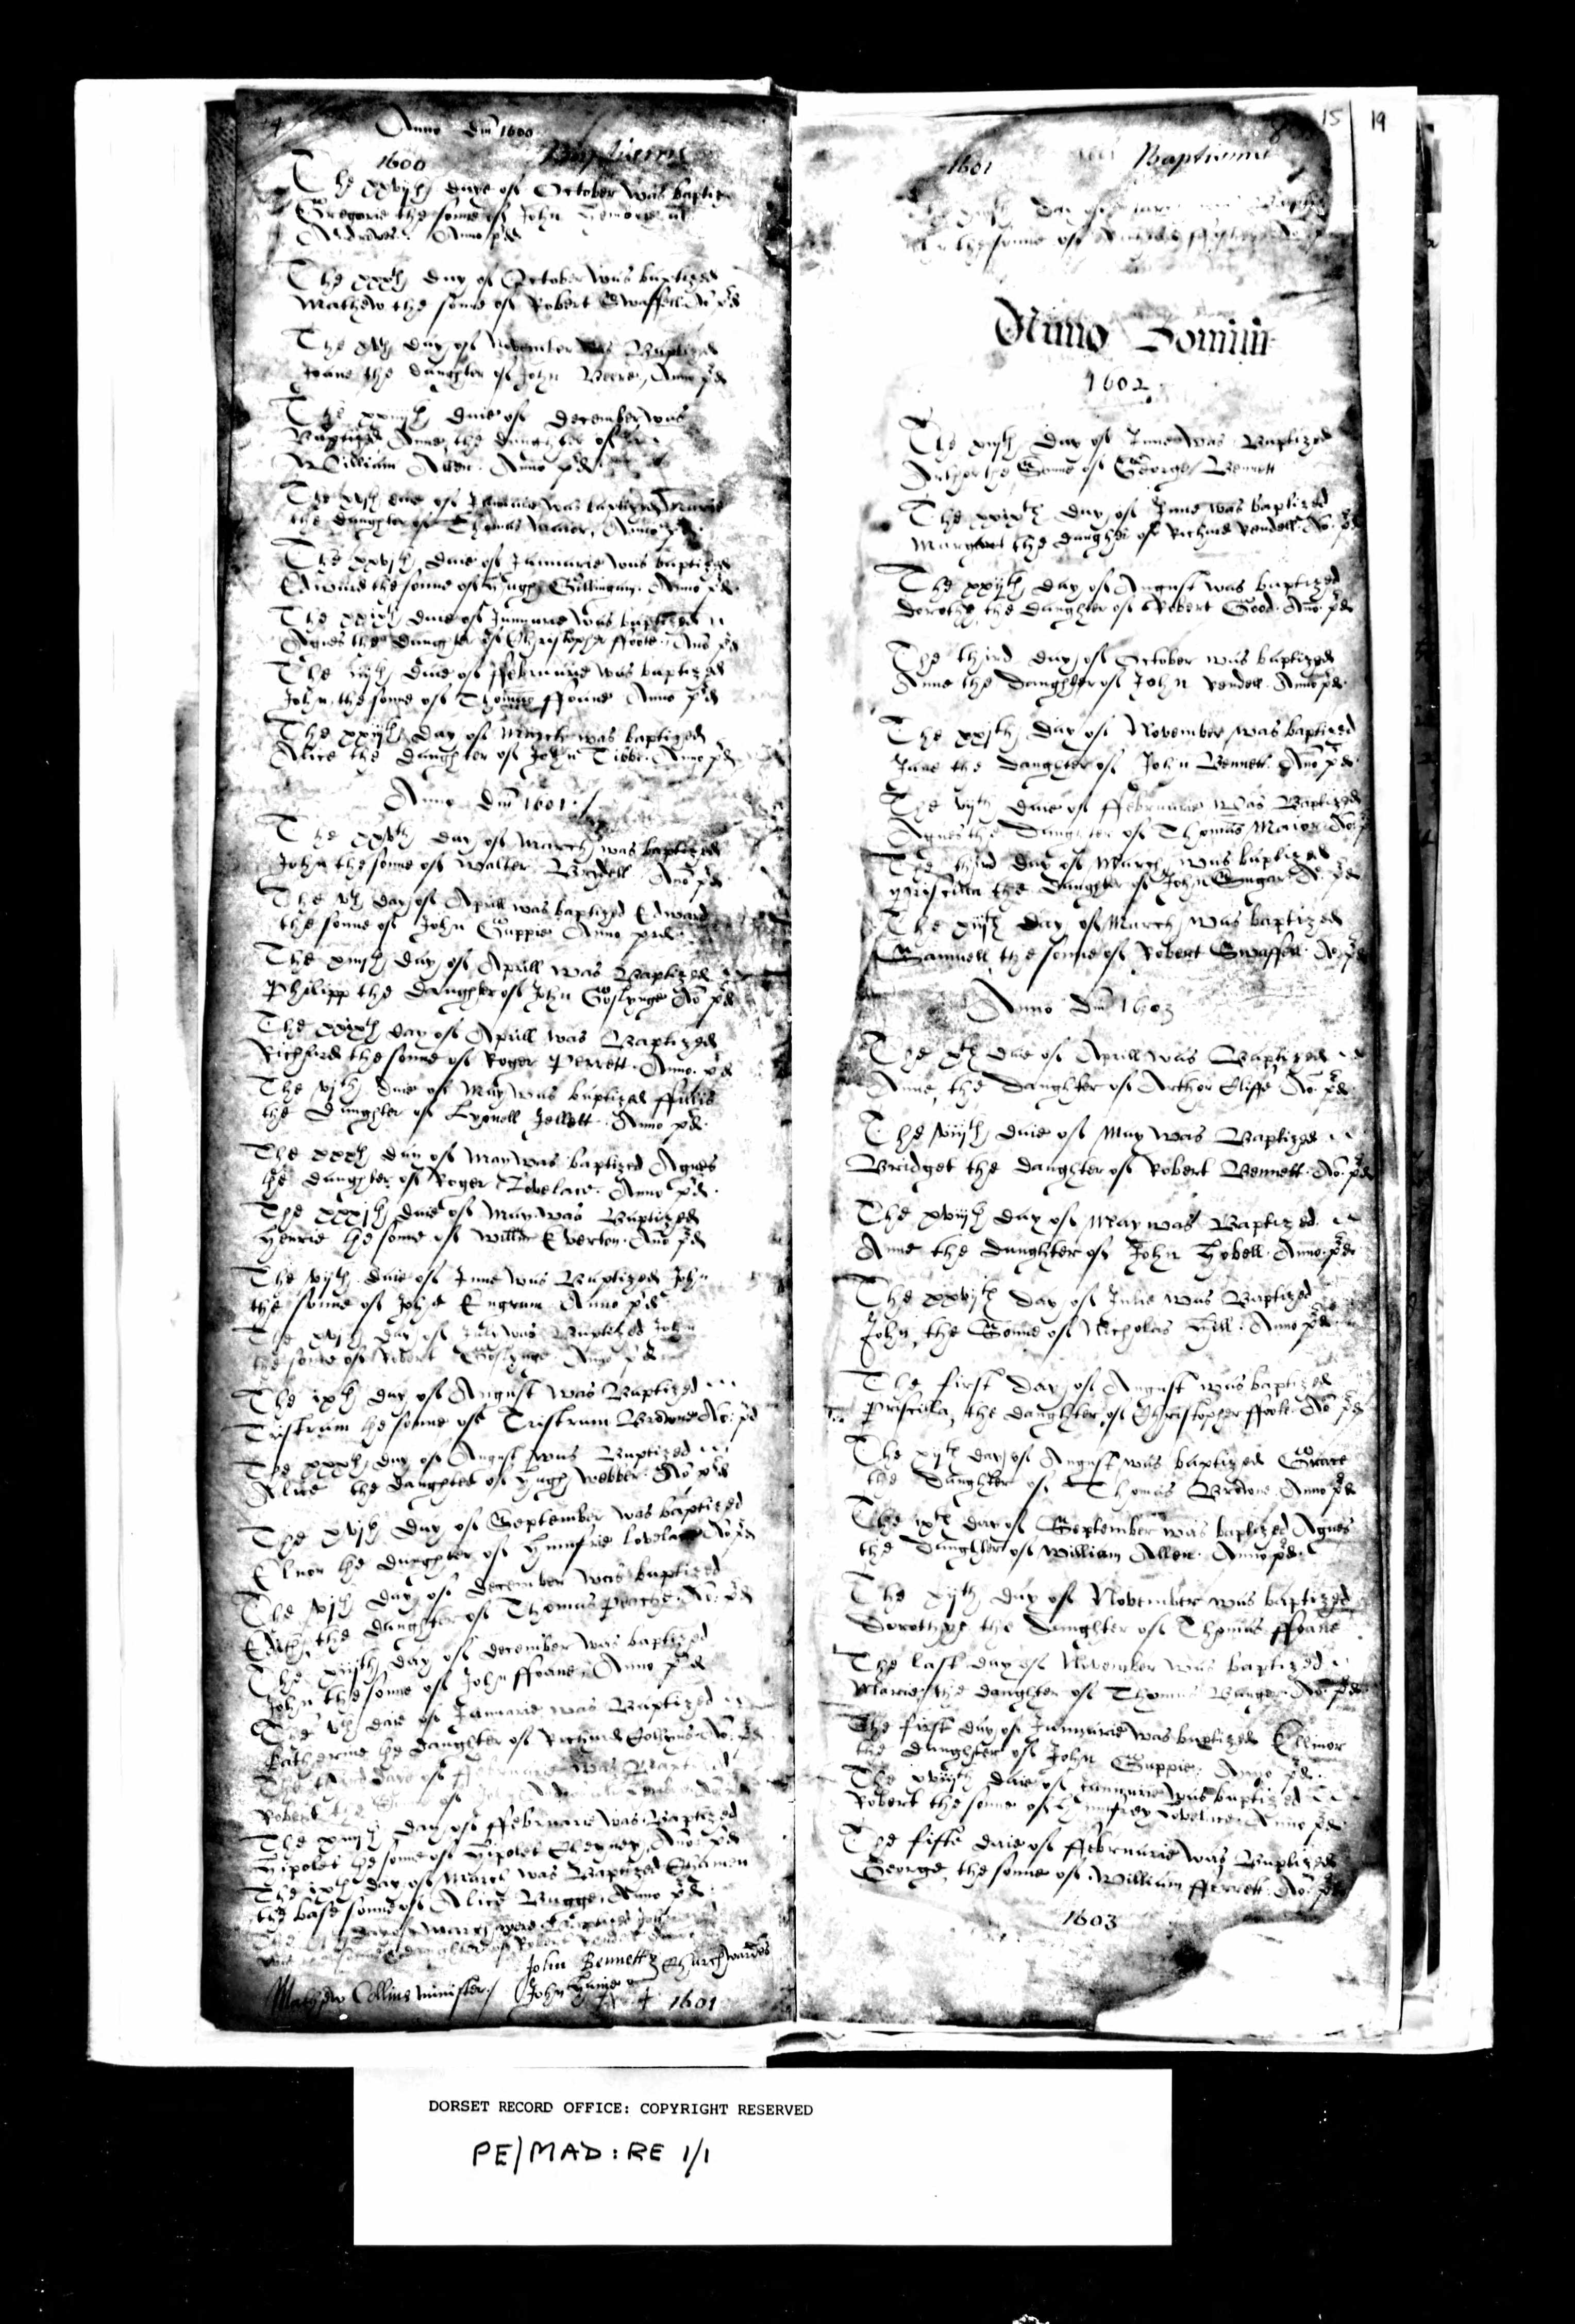 Anno Dm 1600
1600 Baptisems
The xxvjth daye of October was baptiz
Gregorie the sonne of John
Andrewes. Anno pd
The xxxth day of October was baptized
Mathew the sonne of Robert Swaffell Ao pd
The day of November was Baptized
Joane the daughter of John Beere, Anno pd
The daie of December was
Baptized Anne the daughter of
William Allen. Anno pd
The daie of Januarie was baptized Marie
the daughter of Thomas Maior, Anno pd
The xxvjth daie of Januarie was baptized
Edward the sonne of Hugh Gillingam. Anno pd
The xxixth daie of Januarie was baptized
Agnes the daughter of Christopher ffoote. Ano pd
The daie of ffebruarie was baptized
John the sonne of Thomas ffoane Anno pd
The xxijth day of March was baptized
Alice the daughter of John Tibbs. Anno pd
Anno Dm 1601
The xxvth day of March was baptized
John the sonne of Walter Ano pd
The day of Aprill was baptized Edward
the sonne of John Guppie Anno pd
The day of Aprill was Baptized
Philipp the daughter of John Goslynge Ao pd
The xxixth day of Aprill was Baptized
Richard the sonne of Roger Perrett. Anno. pd
The vjth daie of May was baptized ffillis
the daughter of Lyonell Jellett. Anno pd
The xxxth day of May was baptized Agnes
the daughter of Roger Lovelace. Anno pd
The xxxjth daie of May was Baptized
Henrie the sonne of Willm Everton. Ano pd
The vijth daie of June was Baptized John
the sonne of John Engram Anno pd
The xvjth day of Julie was Baptized John
the sonne of Robert Goslynge. Anno pd
The ixth day of August was Baptized
Tristram the sonne of Tristram Browne Ao: pd
The xxxth day of August was Baptized
Alice the daughter of Hugh Webber. Ao pd
The xvjth day of September was baptized
Elnor the daughter of Humfrie Lovelace Ao pd
The vjth day of December was baptized
Edith the daughter of Thomas Peache. Ao: pd
The xiijth day of December was baptized
John the sonne of John ffoane, Anno pd
The vth daie of Januarie was Baptized
Katherine the daughter of Richard Collyns Ao: pd
The third daye of ffebruarie was Bapt
Robert the Sonne of John
The day of ffebruarie was Baptized
Hipolet the sonne of Hipolet Cheyney, Ano: pd
The ixth day of March was Baptized
the base sonne of Alice Bugge, Anno pd
The daye of March were Baptized John
daughter of Robert
John Bennett Churchwardes
Mathew Collins minister John
1601
15 19
1601 Baptisme
The day of
the sonne of
Anno Domini
1602
The xiijth day of June was Baptized
Arthor the Sonne of George Bennett
The xxixth day of June was baptized
Margaret the daughter of Richard Rendell. Ao. pd
The xxijth day of August was baptized
Dorothy the daughter of Robert Good. Ano. pd
The third day of October was baptized
Anne the daughter of John Rendell. Anno pd
The xxjth day of November was baptized
Jane the daughter of John Bennett. Ano pd
The vijth daie of ffebruarie was Baptized
Agnes the Daughter of Thomas Maior. Ao
The third day of March was baptized
Priscilla the daughter of John Ao. pd
The xijth day of March was baptized
Samuell the sonne of Robert Swaffell. Ao. pd
Anno Dm 1603
The xth daie of Aprill was Baptized
Anne, the Daughter of Arthor Cliffe Ao. pd
The viijth daie of May was Baptized
Bridget the daughter of Robert Bennett. Ao. pd
The xviijth day of May was Baptized
Anne the daughter of John Hobell. Anno. pd
The xxvijth day of Julie was Baptized
John the Sonne of Nicholas Hill. Anno pd
The first day of August was baptized
Priscilla, the daughter of Christopher ffoote. Ao pd
The xijth day of August was baptized Grace
the Daughter of Thomas Browne Anno pd
The ixth day of September was baptized Agnes
the Daughter of William Allen. Anno pd
The xijth day of November was baptized
Dorothye the daughter of Thomas ffoane
The last day of November was baptized
Marie the daughter of Thomas Ao. pd
The first day of Januarie was baptized Ellinor
the daughter of John Guppie. Anno pd.
The xviijth daie of Januarie was baptized
Robert the sonne of Humfrey Lovelace. Anno pd
The fifte daie of ffebruarie was Baptized
George the sonne of William fferrett. Ao. pd
1603
DORSET RECORD OFFICE: COPYRIGHT RESERVED
PE/MAD: RE 1/1